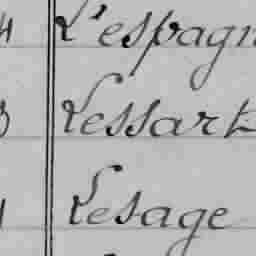 4 L'espagn
Lessart
Lesage